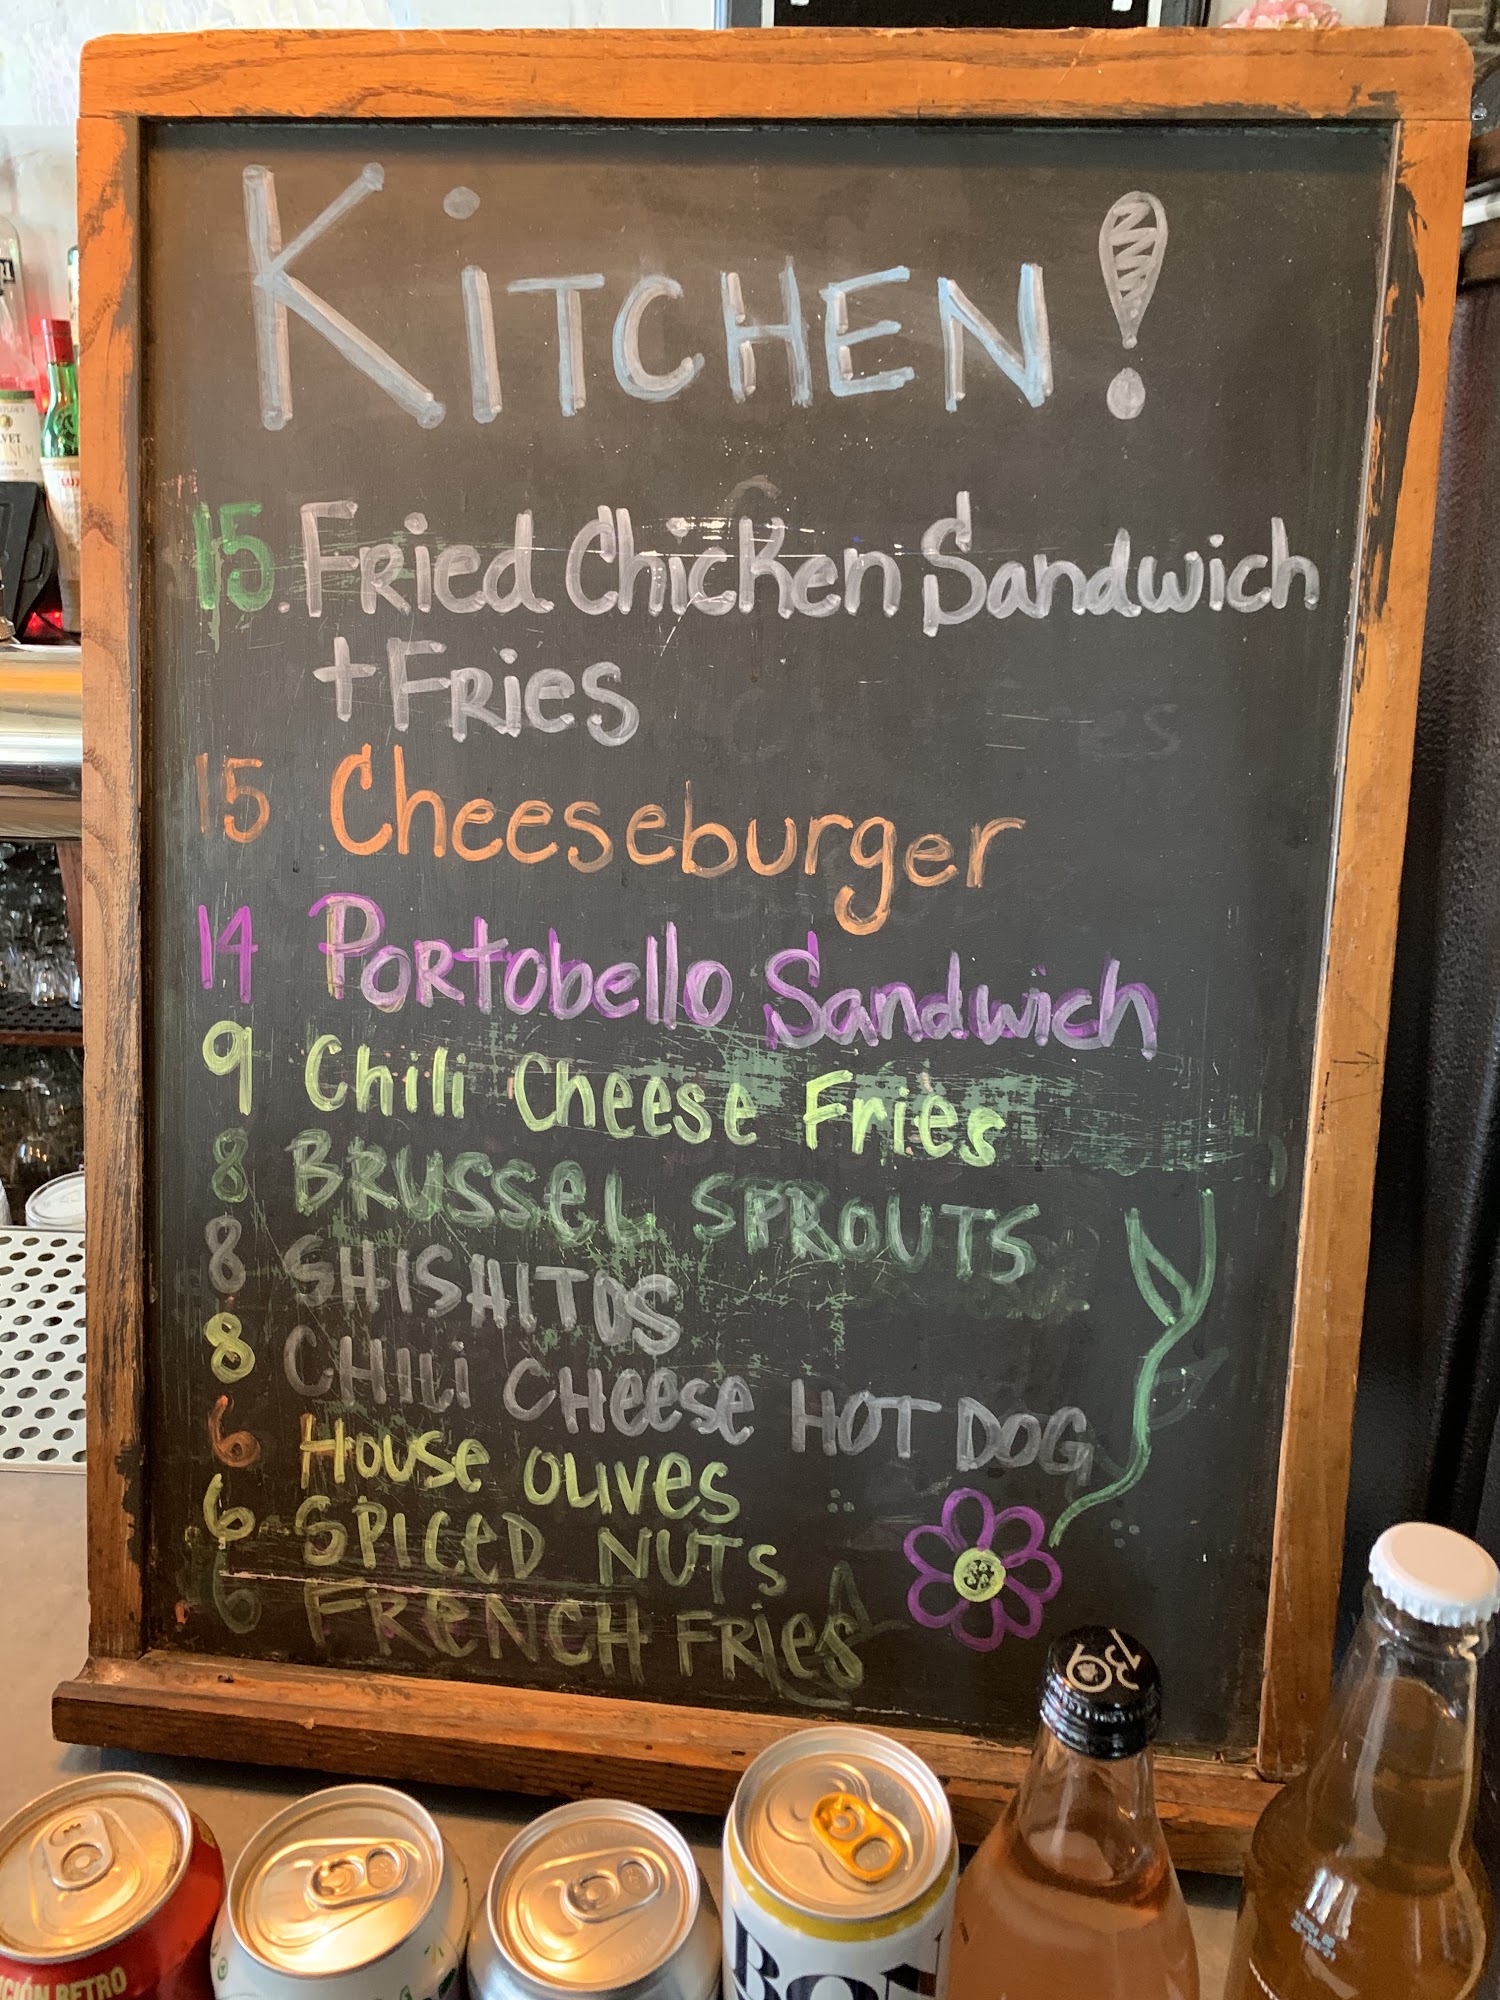 KiTCHEN!
15. Fried Chicken Sandwich
+ Fries
15 Cheeseburger
14 Portobello Sandwich
9 Chili Cheese Fries
8 BRUSSEL SPROUTS
8 SHISHITOS
8 CHILi CHeese HOT DOG
6 House Olives
6 SPICED NUTS
6 FRENCH FRies
139
CIÓN RETRO